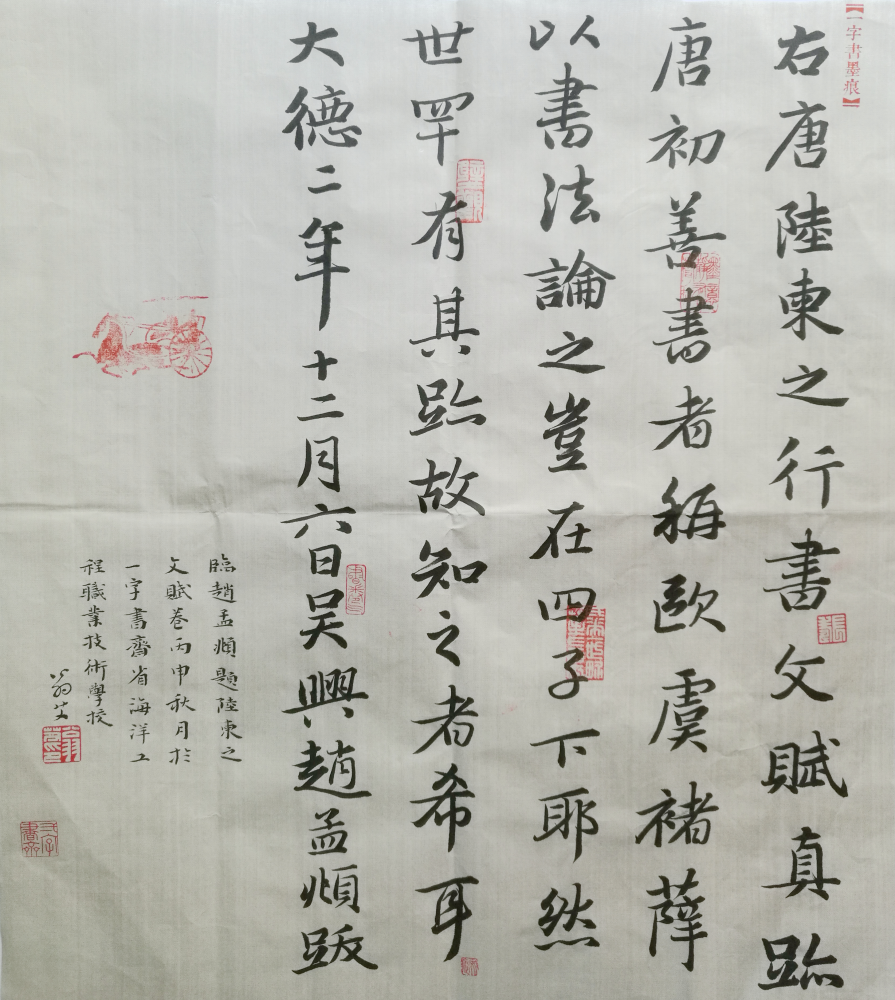 【一字書墨痕】
右唐陸柬之行書文賦真跡
唐初善書者稱歐虞褚薛
以書法論之豈在四子下耶然
世罕有其跡故知之者希耳
大德二年十二月六日吴興趙孟頫跋
臨趙孟頫題陸柬之
文賦卷丙申秋月於
一字書齋省海洋工
程職業技術學校